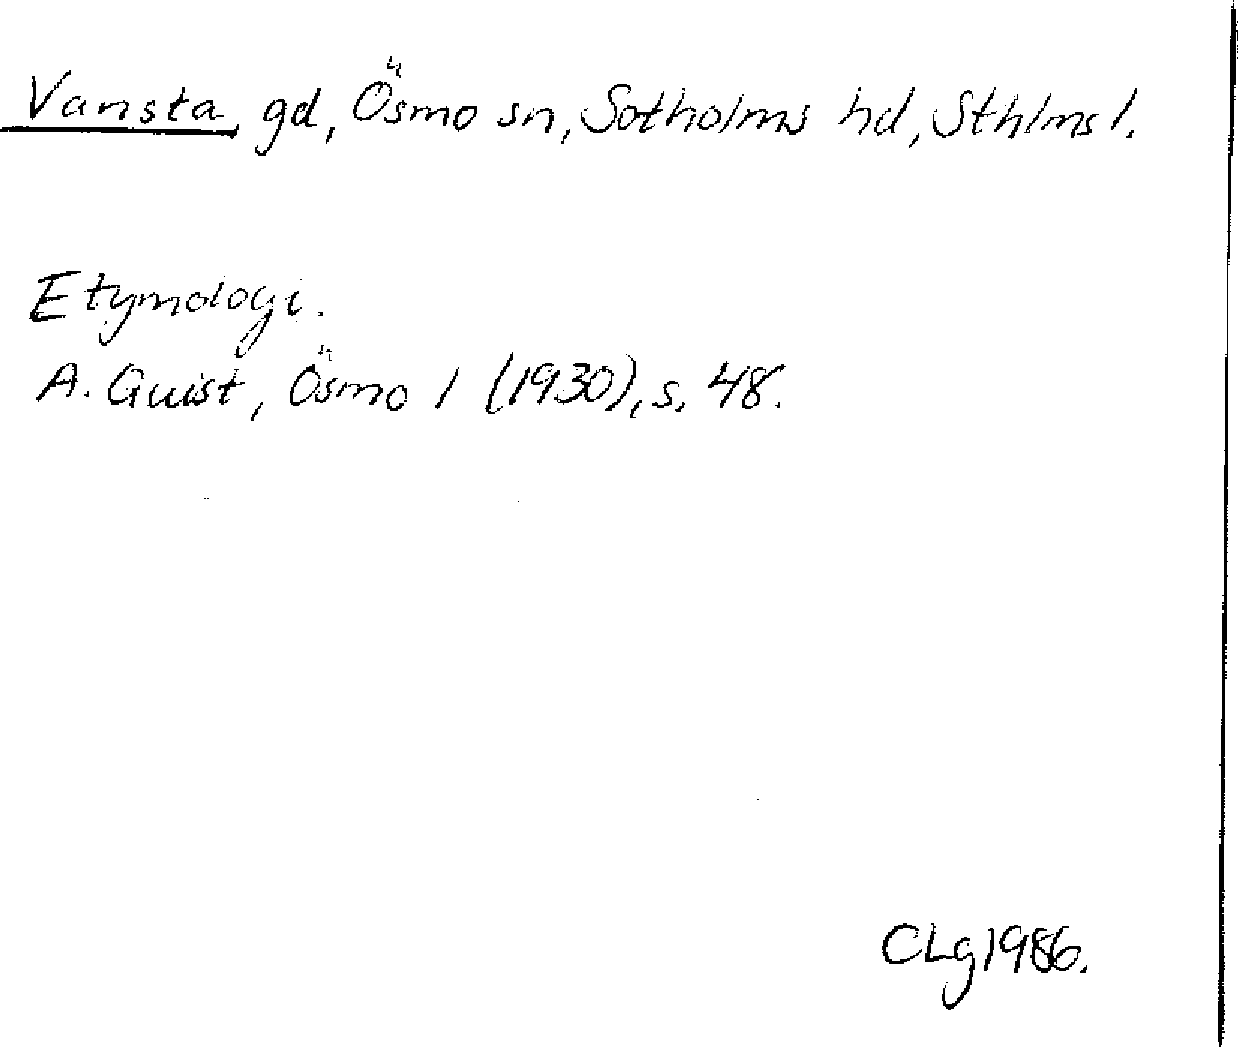 Vansta, gd, Ösmo sn, Sotholms hd, Sthlms l.
Etymologi.
A. Quist, Ösmo 1 (1930), s. 48.
CLg 1986.